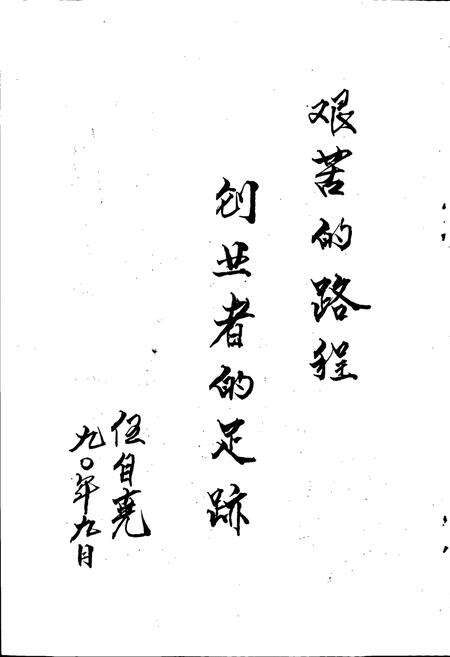 艰苦的路程
创业者的足跡
任自尧
九〇年九月